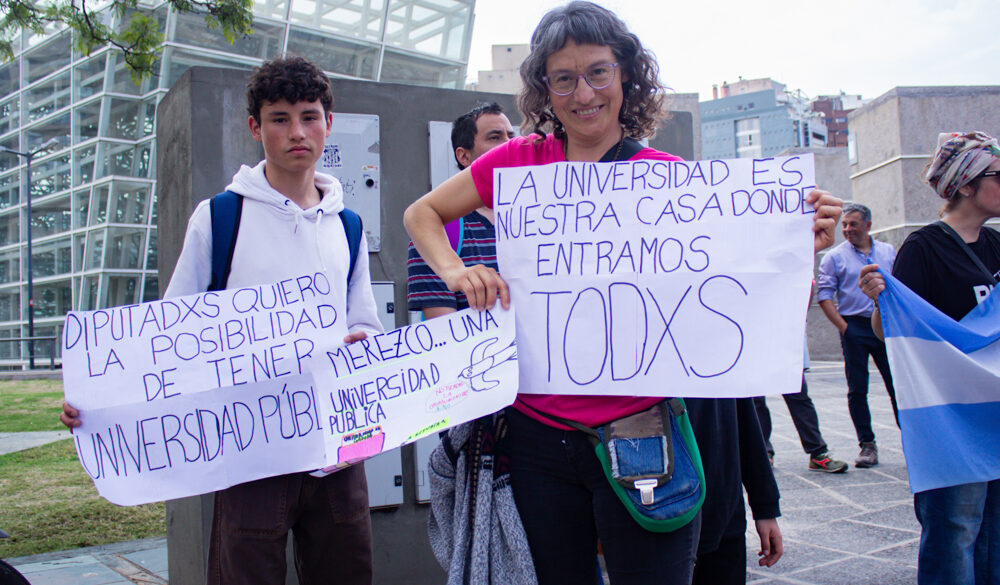 DIPUTADXS QUIERO
LA POSIBILIDAD
DE TENER
UNIVERSIDAD PÚBL
MEREZCO... UNA
UNIVERSIDAD
PÚBLICA
LA UNIVERSIDAD ES
NUESTRA CASA DONDE
ENTRAMOS
TODXS